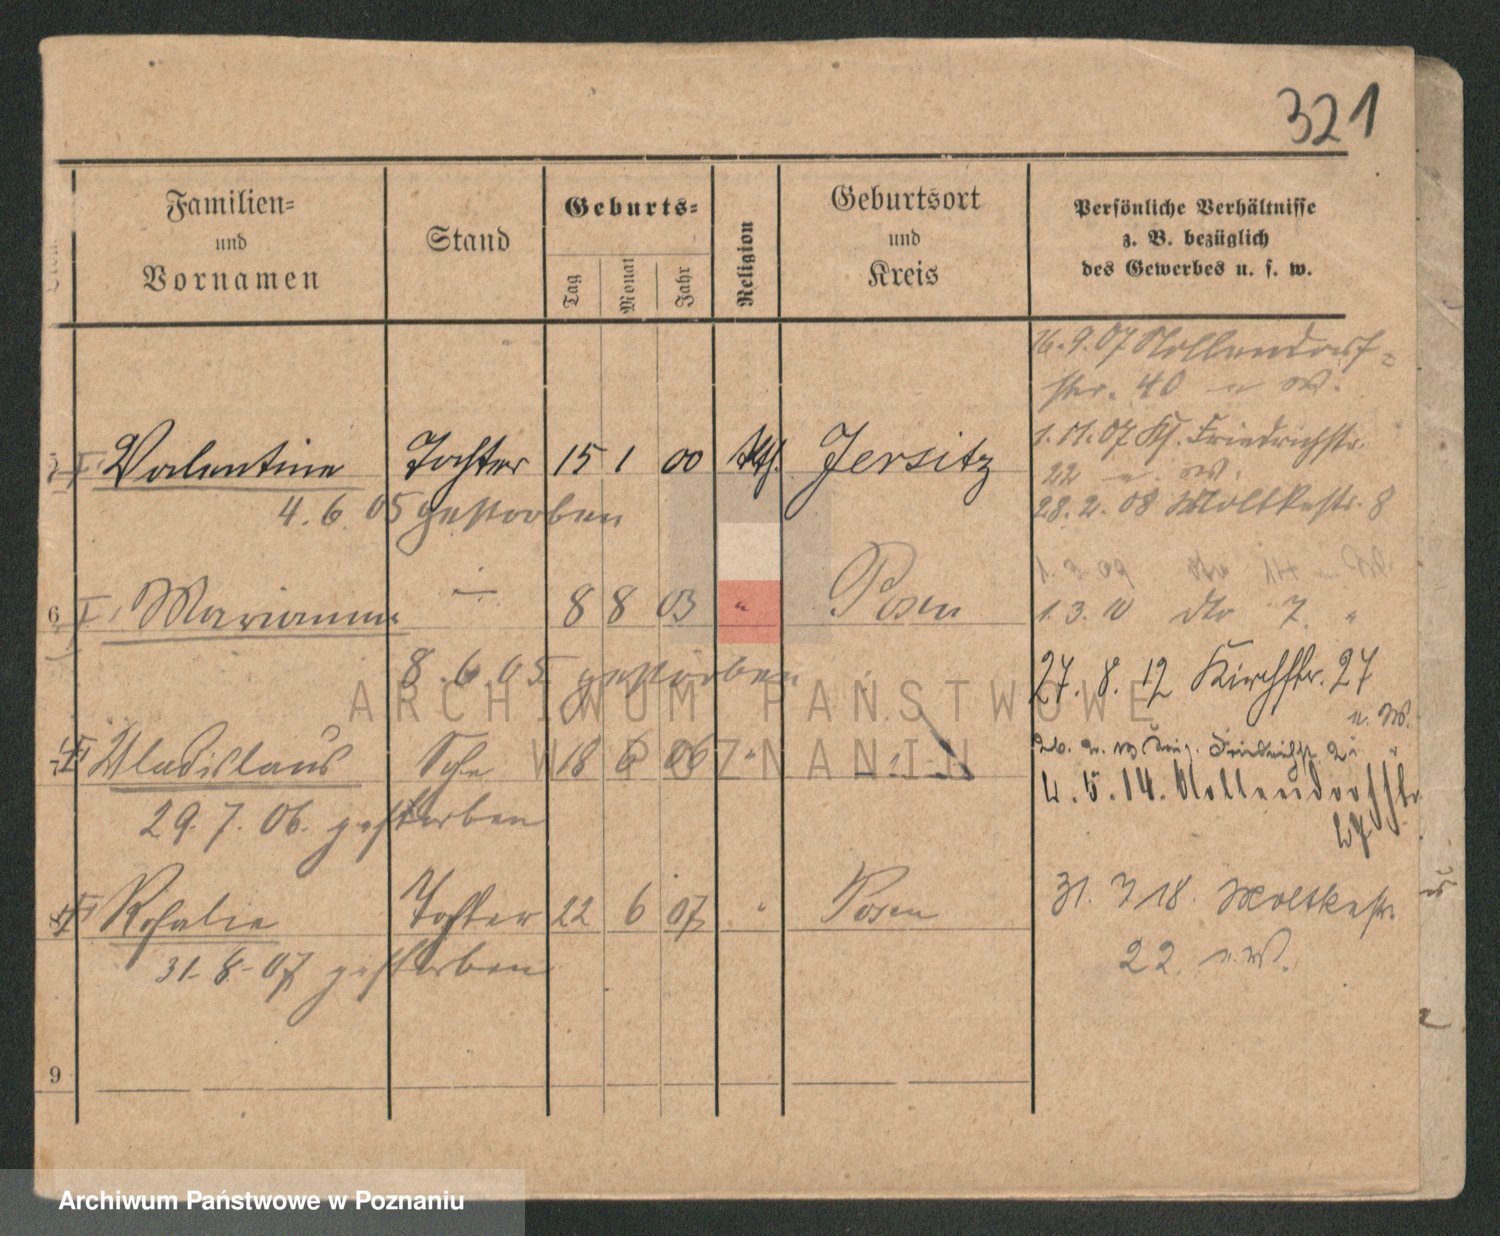 321
Familien=
und
Vornamen
Stand
Geburts=
Tag
Monat
Jahr
Religion
Geburtsort
und
Kreis
Persönliche Verhältnisse
z. B. bezüglich
des Gewerbes u. s. w.
16.9.07 Nollendorf=
str. 40 u W.
1.11.07 Kl. Friedrichstr.
22 u. W.
28.2.08 Moltkestr. 8
Valentine Tochter 15 1 00 kth. Jersitz
4.6.05 gestorben
6 Marianna — 8 8 03 " Posen
1.3.10 dto 7. "
8.6.05 gestorben
27.8.12 Kirchstr. 27
u. W.
Wladislaus Sohn 18 6 06 "
29.7.06. gestorben
4.5.14. Nollendorfstr
27
Rosalie Tochter 22 6 07 " Posen
31.8.07 gestorben
31.3 18. Moltkestr.
22. u. W.
9
ARCHIWUM PAŃSTWOWE
W POZNANIU
Archiwum Państwowe w Poznaniu